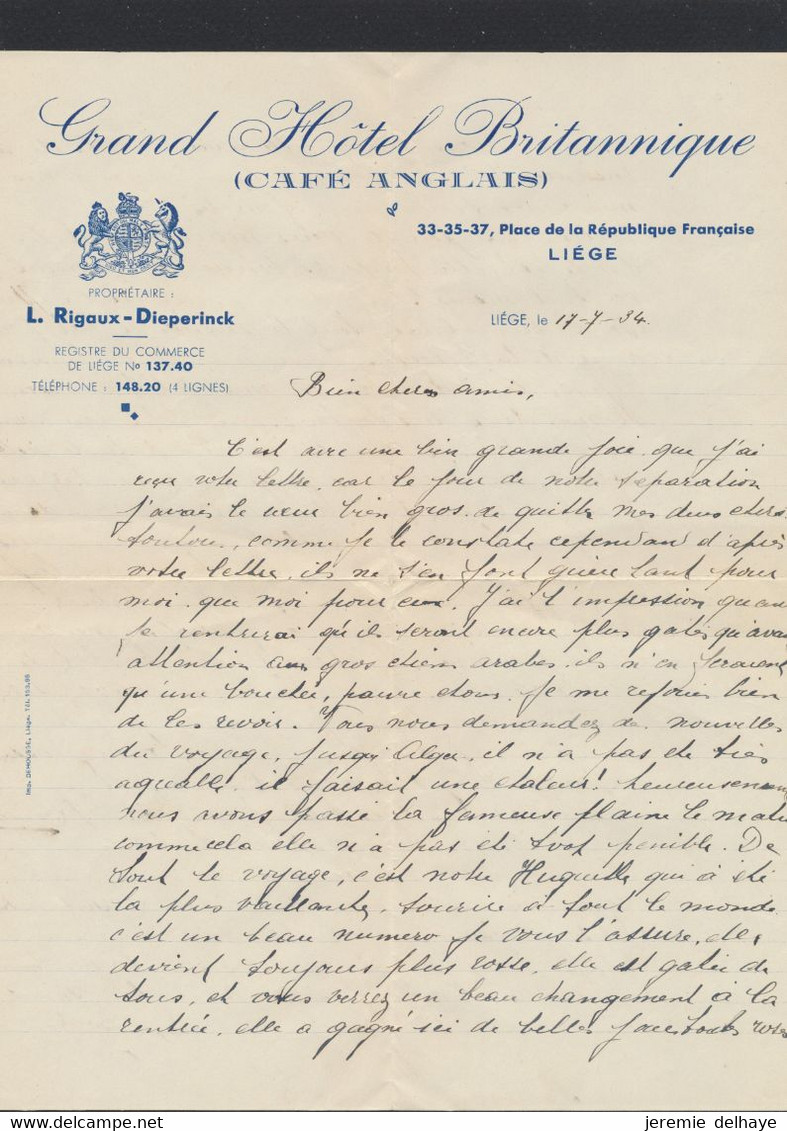 Grand Hôtel Britannique
(CAFÉ ANGLAIS)
33-35-37, Place de la République Française
LIÉGE
PROPRIÉTAIRE :
L. Rigaux-Dieperinck
LIÉGE, le 17-7-34.
REGISTRE DU COMMERCE
DE LIÉGE No 137.40
TÉLÉPHONE : 148.20 (4 LIGNES)
Bien chers amis,
C'est avec une bien grande joie que j'ai
reçu votre lettre, car le jour de notre séparation
j'avais le cœur bien gros de quitter mes deux chers
toutou, comme je le constate cependant d'après
votre lettre, ils ne s'en font guère tant pour
moi que moi pour eux. J'ai l'impression quand
je rentrerai qu'ils seront encore plus gatés qu'avant
attention aux gros chiens arabes, ils n'en feraient
qu'une bouchée, pauvre chous. Je me rejouis bien
de les revoir. Vous nous demandez de nouvelles
du voyage, jusqu'Alger, il n'a pas été très
agréable, il faisait une chaleur! heureusement
nous avons passé la fameuse plaine le matin
comme cela elle n'a pas été trop penible. De
tout le voyage, c'est notre Huguette qui a été
la plus vaillante, sourire à tout le monde
c'est un beau numero je vous l'assure, elle
devient toujours plus rosse, elle est gatée de
tous, et vous verrez un beau changement à la
rentrée, elle a gagné ici de belles joues toutes roses
Imp. DEHOUSSE, Liége. Tél.
jeremie delhaye
www.delcampe.net